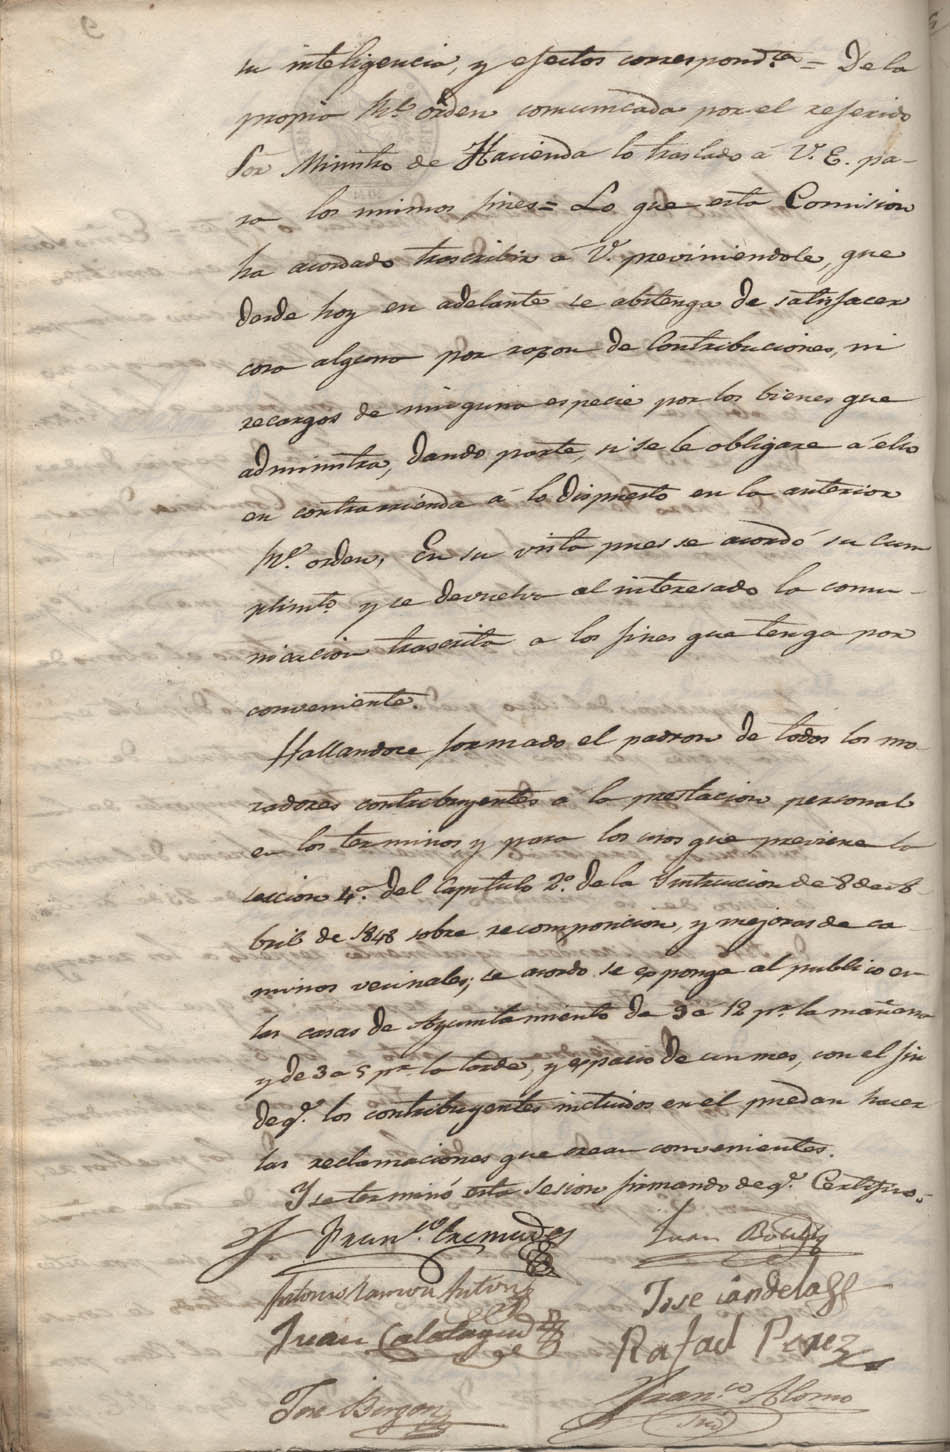 su inteligencia, y efectos correspond.tes = De la
propia Rl. órden comunicada por el referido
Sor Ministro de Hacienda lo traslado á V. E. pa-
ra los mismos fines = Lo que esta Comision
ha acordado trascribir á V. previniendole, que
desde hoy en adelante se abstenga de satisfacer
cosa alguna por razon de Contribuciones, ni
recargos de ninguna especie por los bienes que
administra, dando parte, si se le obligare á ello
en contravencion á lo dispuesto en la anterior
Rl. orden, En su vista pues se acordó su cum
plimto. y se devuelva al interesado la comu-
nicacion trascrita a los fines que tenga por
conveniente.
Hallandose formado el padron de todos los mo-
radores contribuyentes á la prestacion personal
en los terminos y para los usos que previene la
seccion 4.a del Capitulo 2.o de la Instruccion de 8 de A-
bril de 1848 sobre recomposicion, y mejoras de ca
minos vecinales; se acordo se esponga al publico en
las casas de Ayuntamiento de 9 a 12 pr. la mañana
y de 3 a 5 pr. la tarde, y espacio de un mes, con el fin
de q.e los contribuyentes incluidos en el puedan hacer
las reclamaciones que crean convenientes.
Y se terminó esta sesion firmando de q.e Certifico.
Fran.co Cremades
Juan
Antonio Ramon
Jose Candela
Juan Calatayud
Rafael Perez
Jose
Fran.co Alonso
Srio